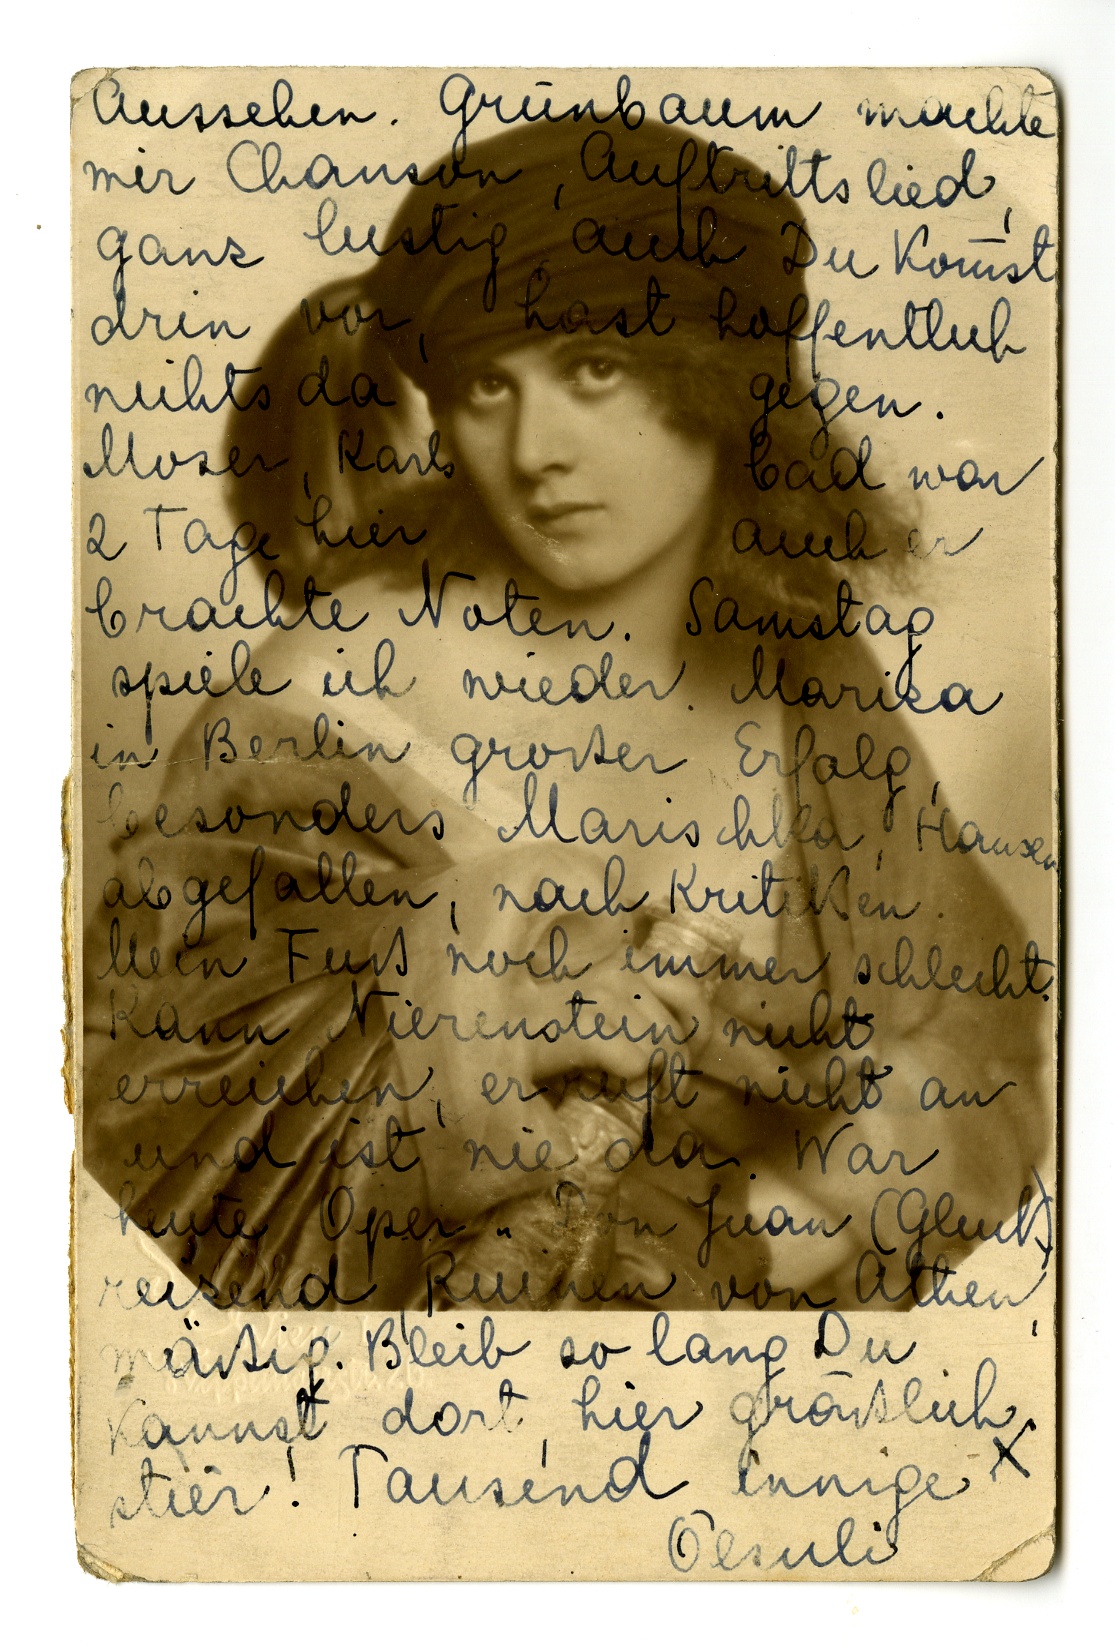 Aussehen. Grünbaum machte
mir Chanson, Auftrittslied,
ganz lustig auch Du kom̄st
drin vor, hast hoffentlich
nichts da gegen.
Moser, Karls bad war
2 Tage hier auch er
brachte Noten. Samstag
spiele ich wieder. Mariza
in Berlin großer Erfolg,
besonders Marischka, Hansen
abgefallen, nach Kritiken.
Mein Fuß noch immer schlecht.
Kann Nierenstein nicht
erreichen, er ruft nicht an
und ist nie da. War
heute Oper „Don Juan (Gluck)
reizend, Ruinen von Athen,
mäßig. Bleib so lang Du
kannst dort, hier gräßlich
stier! Tausend innige X